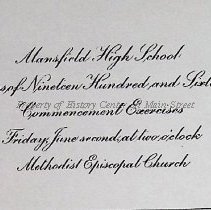 Mansfield High School
s of Nineteen Hundred and Sixte
Property of History Center @ Main Street
Commencement Exercises
Friday, June second, at two o'clock
Methodist Episcopal Church